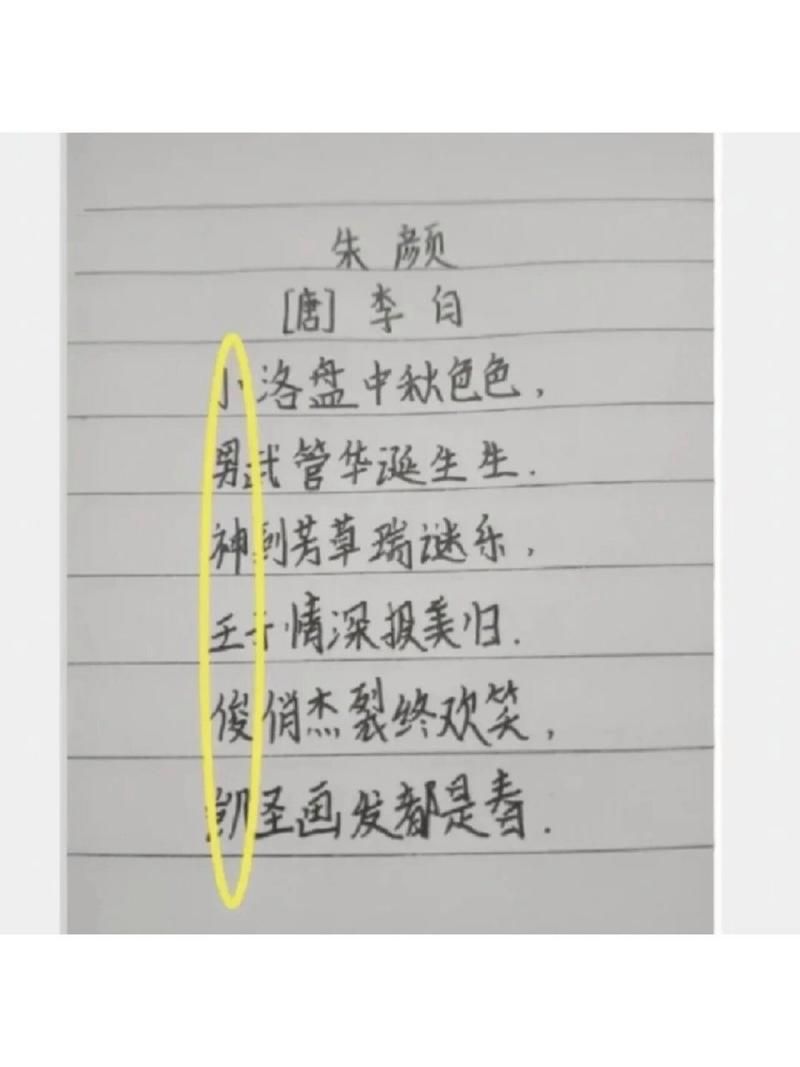 朱颜
[唐] 李白
小洛盘中秋色色，
男武管华诞生生.
神剑芳草瑞谜乐，
王子情深报美归.
俊俏杰裂终欢笑，
凯圣画发都是春.